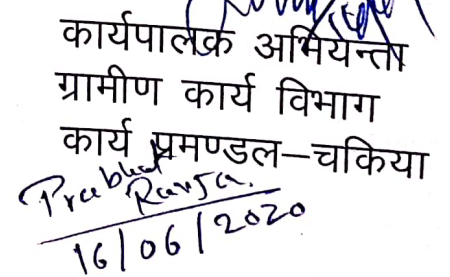 कार्यपालक अभियन्ता
ग्रामीण कार्य विभाग
कार्य प्रमण्डल–चकिया
Prabhat
Ranja.
16/06/2020